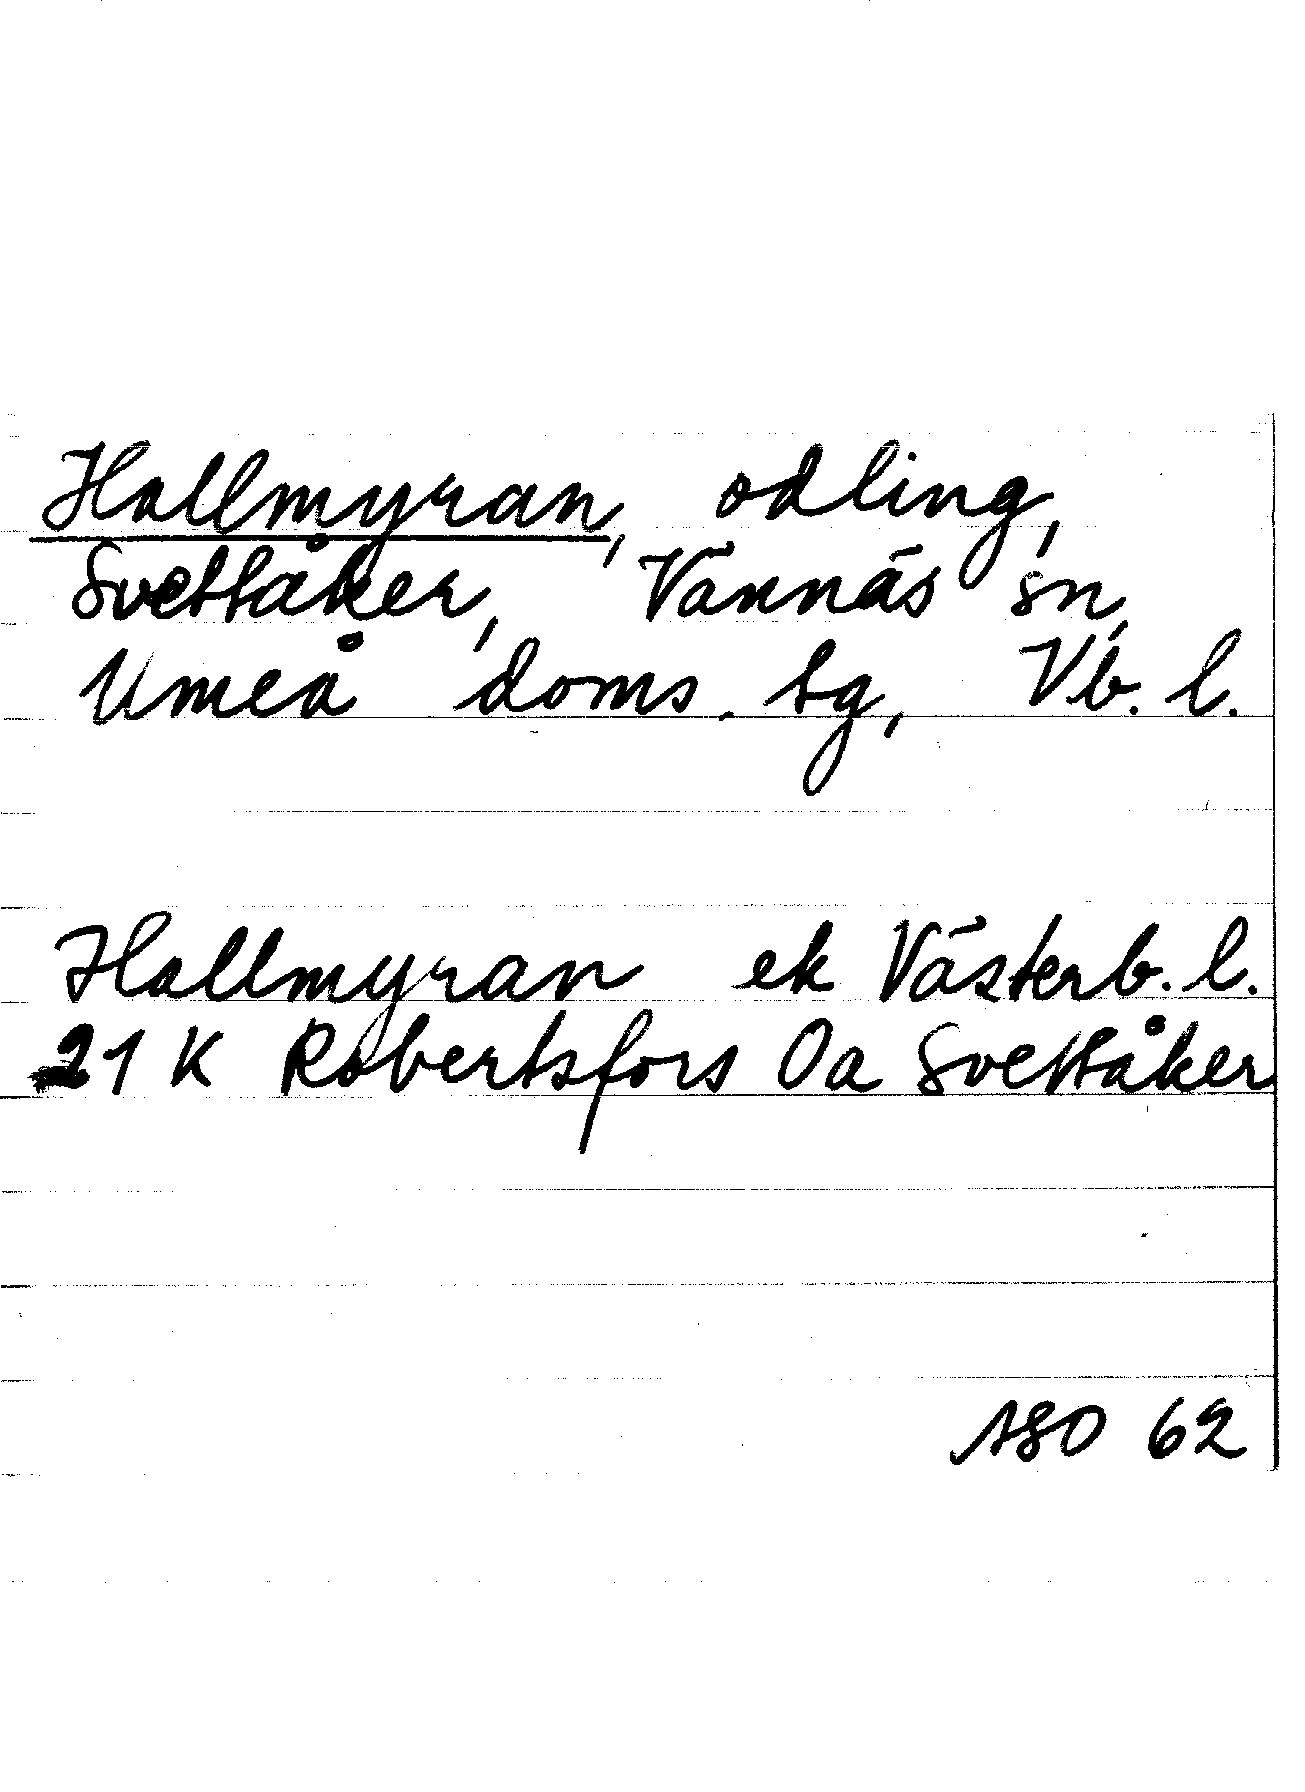 Hallmyran, odling,
Svettåker, Vännäs sn,
Umeå doms. sg, Vb. l.
Hallmyran ek Västerb. l.
21 K Robertsfors Oa Svettåker
ASO 62